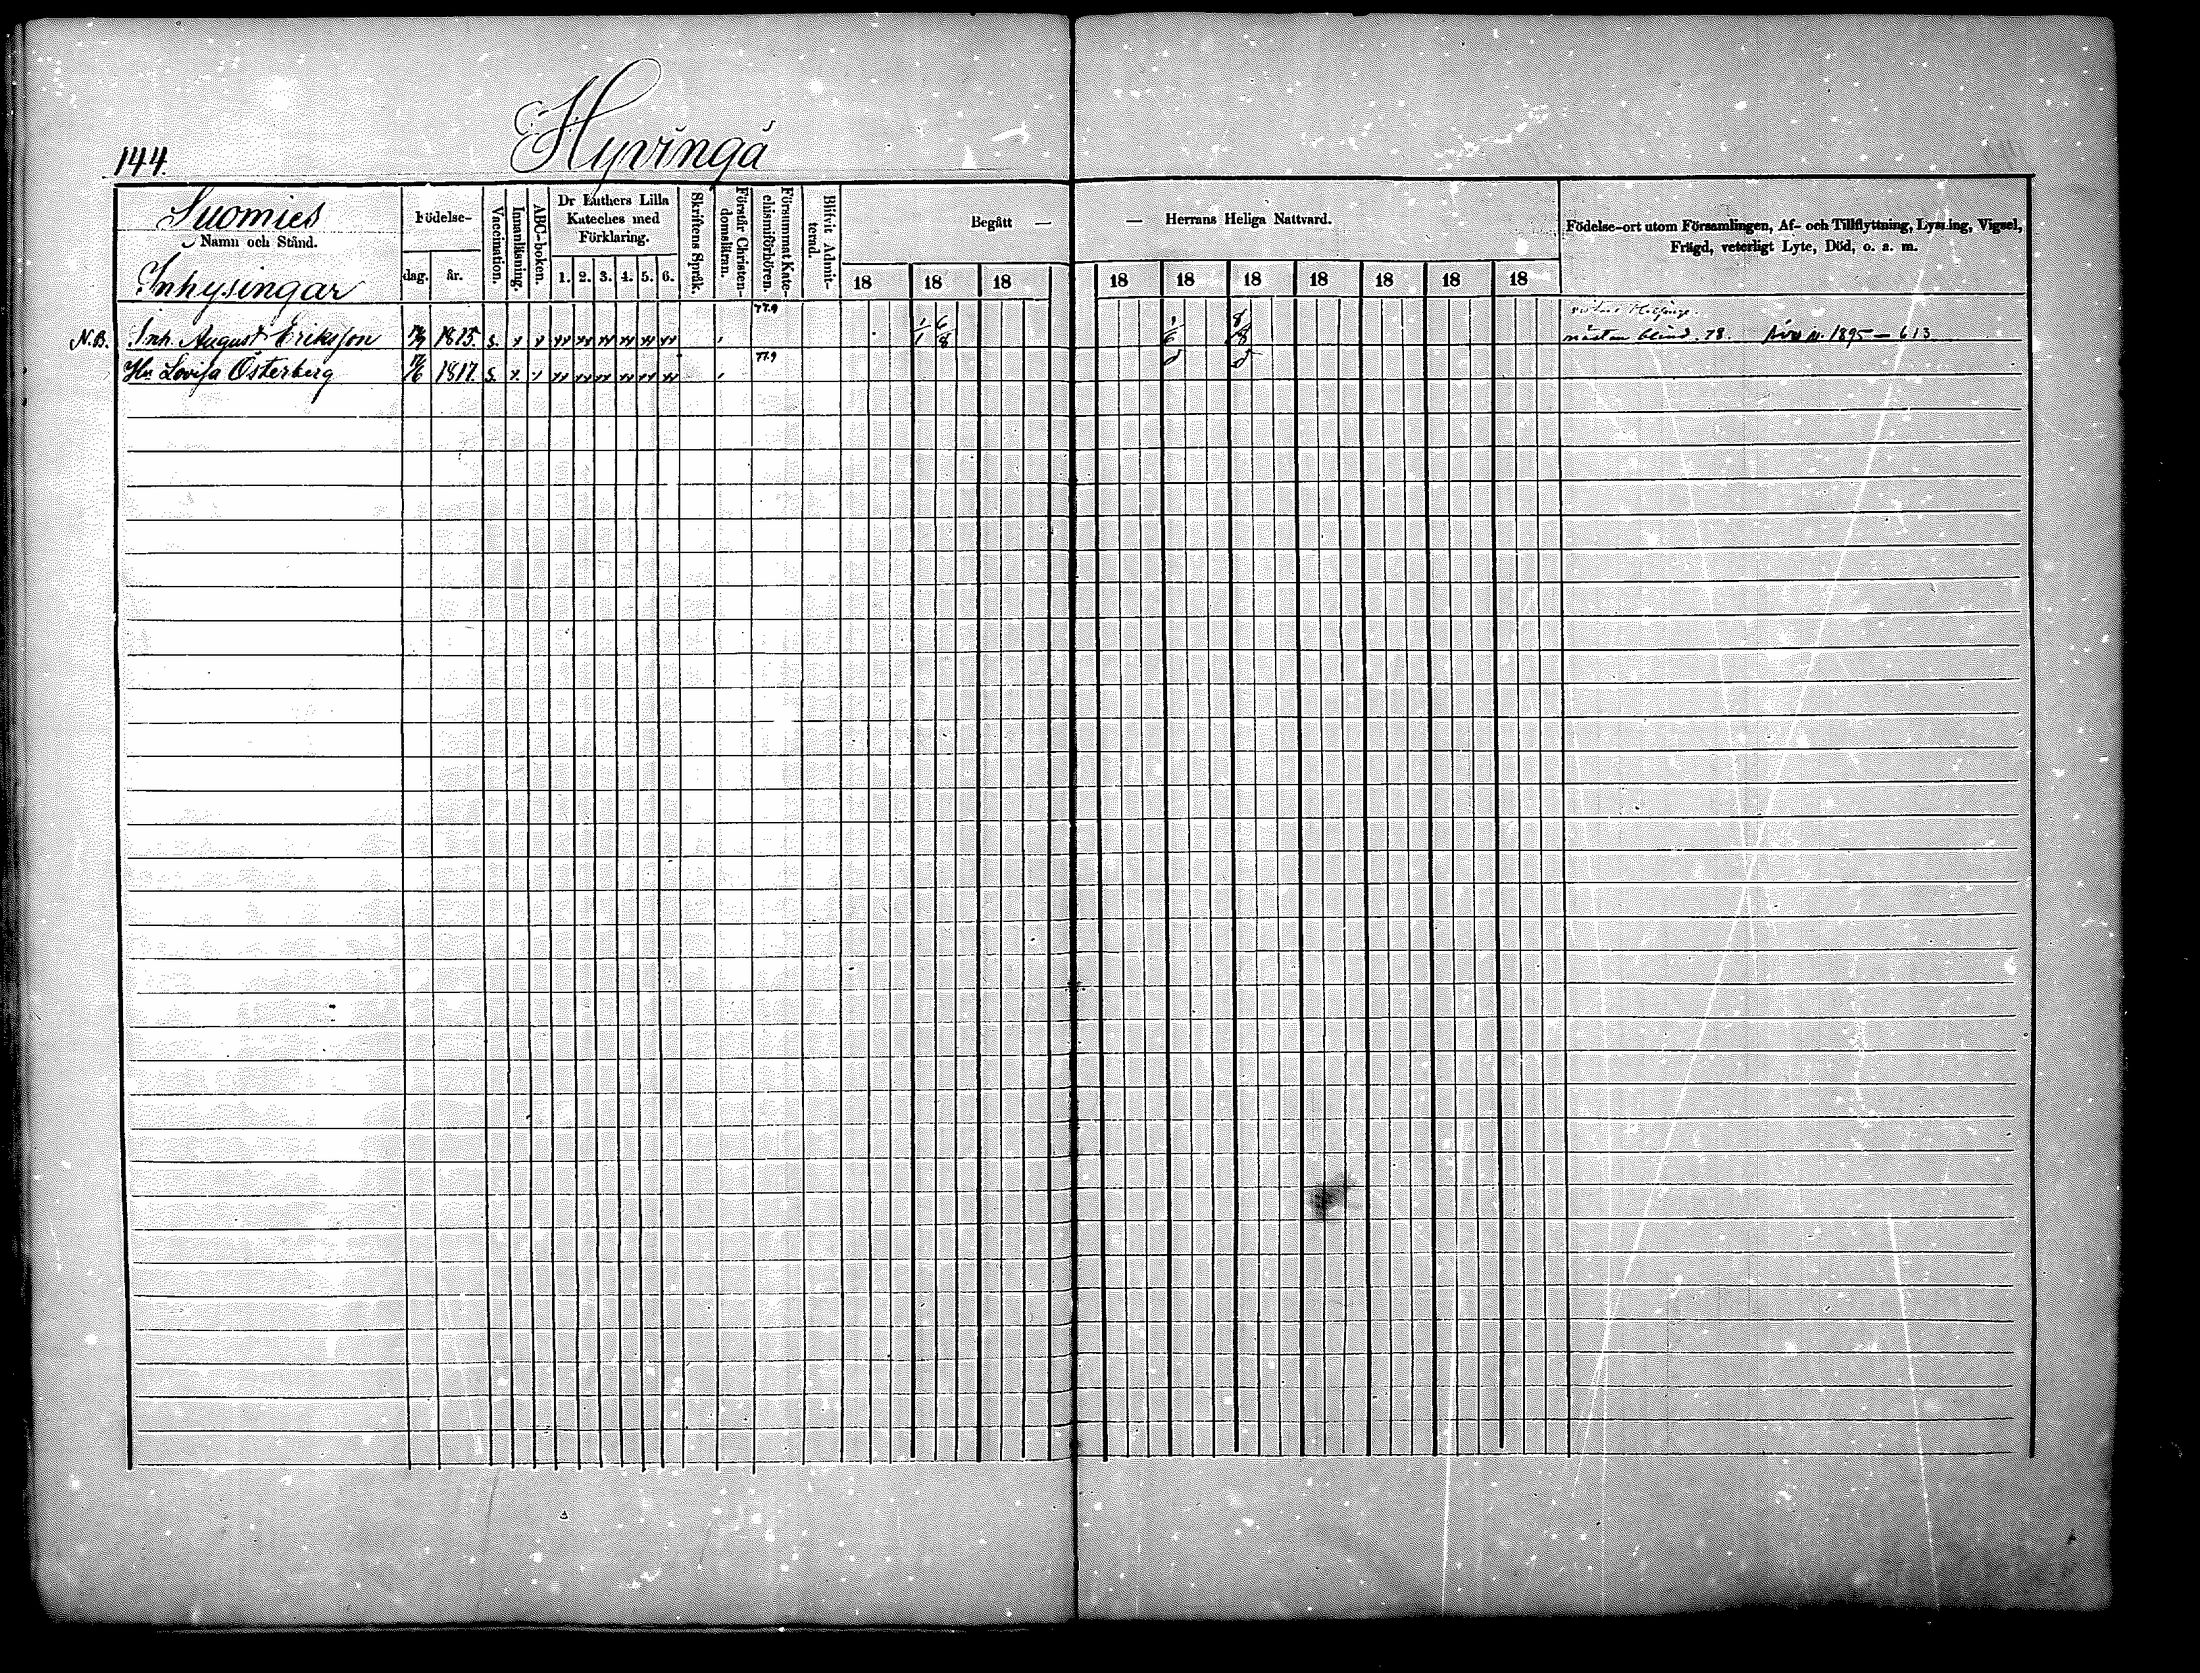 144.
Hyvingä
Suomies
Namn och Stånd.
Inhysingar
Födelse-
dag.
år.
Vaccination.
Innanläsning.
ABC-boken.
Dr Luthers Lilla
Kateches med
Förklaring.
1. 2. 3. 4. 5. 6.
Skriftens Språk.
Förstår Christen-
domsläran.
Försummat Kate-
chismiförhören.
Blifvit Admit-
terad.
Begått — — Herrans Heliga Nattvard.
18 18 18 18 18 18 18 18 18 18
Födelse-ort utom Församlingen, Af- och Tillflyttning, Lysning, Vigsel,
Frägd, veterligt Lyte, Död, o. a. m.
77.9
N.B. Inh. August Eriksson 1815. s. x x xx xx xx xx xx xx 1/1 6/8 1/6 8/8 nästan blind. 78. 1895 — 613
77.9
Hu Lovisa Österberg 1817. s. x x xx xx xx xx xx xx